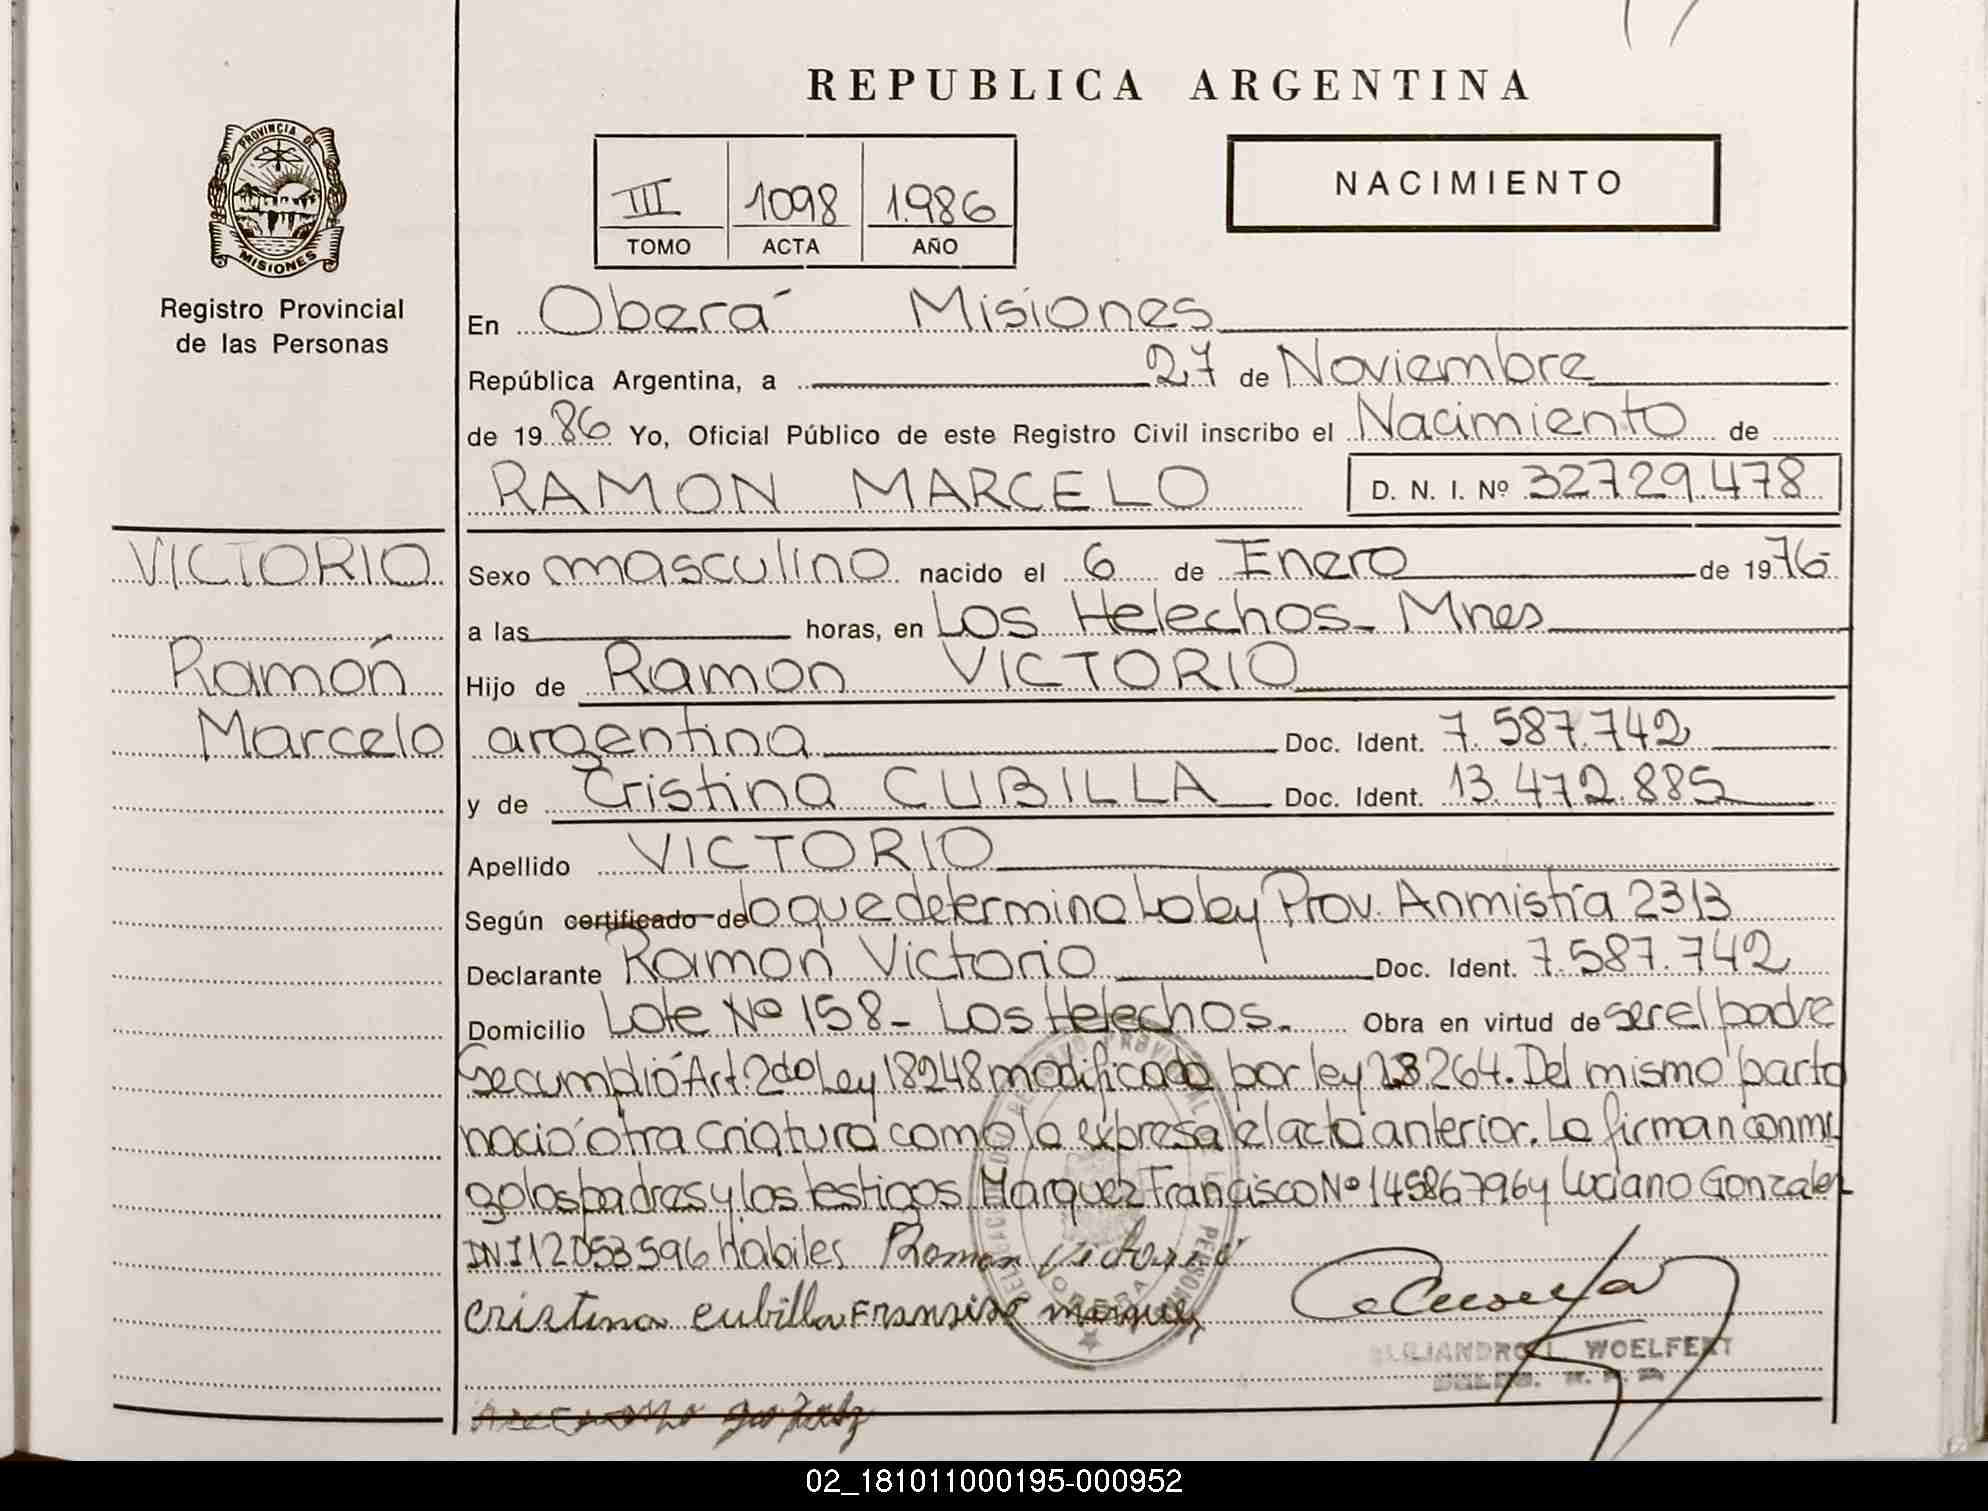 REPUBLICA ARGENTINA
PROVINCIA DE
MISIONES
Registro Provincial
de las Personas
III 1098 1.986
TOMO ACTA AÑO
NACIMIENTO
En Oberá Misiones
República Argentina, a 27 de Noviembre
de 19 86 Yo, Oficial Público de este Registro Civil inscribo el Nacimiento de
RAMON MARCELO D. N. I. Nº 32729.478
VICTORIO
Ramón
Marcelo
Sexo masculino nacido el 6 de Enero de 1976-
a las horas, en Los Helechos- Mnes
Hijo de Ramon VICTORIO
argentina Doc. Ident. 7.587.742
y de Cristina CUBILLA Doc. Ident. 13.472.885
Apellido VICTORIO
Según certificado de lo que determina La ley Prov. Anmistía 2313
Declarante Ramon Victorio Doc. Ident. 7.587.742
Domicilio Lote Nº 158- Los Helechos. Obra en virtud de ser el padre
Se cumplió Art. 2do Ley 18248 modificada por ley 23264. Del mismo parto
nació otra criatura como lo expresa el acta anterior. La firman conmi
go los padres y los testigos Marquez Francisco Nº 14586796 y Luciano Gonzalez
DNI 12053596 Habiles Ramon Victorio
Cristina Cubilla Fransisco marquez
WOELFERT
OBERA
02_181011000195-000952